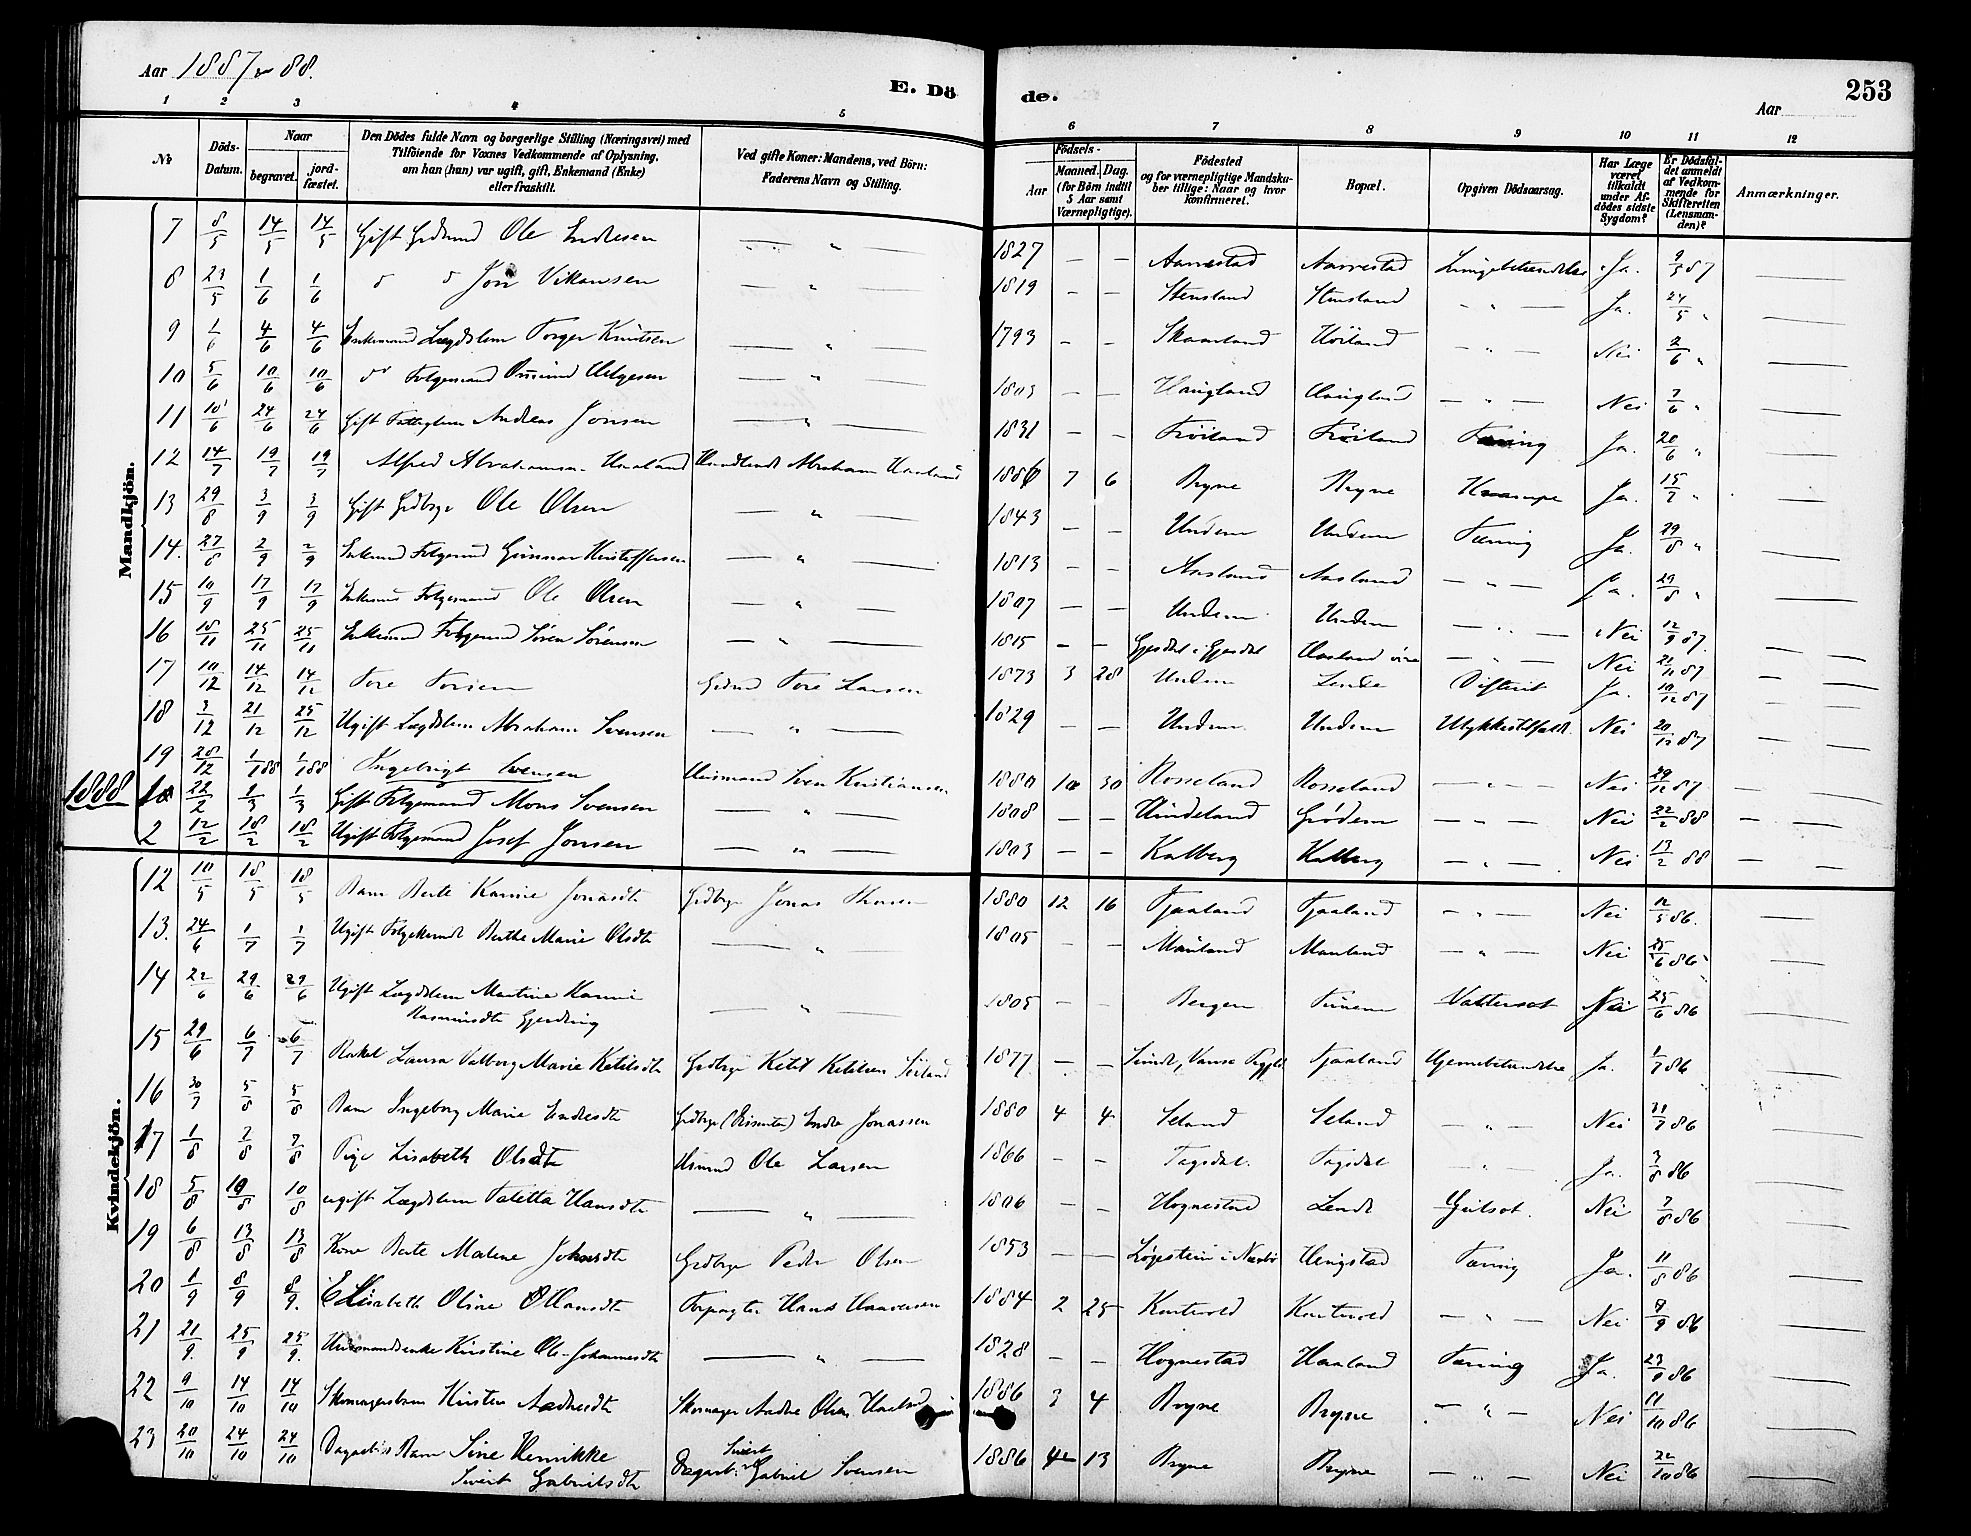 Aar 1887 88.
E. Dö de.
Aar
253
1 2 3 4 5 6 7 8 9 10 11 12
№
Döds-Datum.
Naar
begravet.
jord-fæstet.
Den Dödes fulde Navn og borgerlige Stilling (Næringsvei) med
Tilföiende for Voxnes Vedkommende af Oplysning,
om han (hun) var ugift, gift, Enkemand (Enke)
eller fraskilt.
Ved gifte Koner: Mandens, ved Börn:
Faderens Navn og Stilling.
Födsels-
Aar
Maaned. Dag.
(for Börn indtil
5 Aar samt
Værnepligtige).
Födested
og for værnepligtige Mandsku-
ber tillige: Naar og hvor
konfirmeret.
Bopæl.
Opgiven Dödsaarsag.
Har Læge
været
tilkaldt
under Af-
dödes sidste
Sygdom?
Er Dödsfal-
det anmeldt
af Vedkom-
mende for
Skifteretten
(Lensman-
den)?
Anmærkninger.
Mandkjön.
7 8/5 14/5 14/5 Gift Grdmd Ole Endresen — " — 1827 — — Aarrestad Aarrestad Lungebetændelse Ja. 9/5 87
8 23/5 1/6 1/6 Jon Vikansen — " — 1819 — — Stensland Stensland — " — Ja. 24/5 "
9 4/6 4/6 Enkemand Lægdslem Torger Knutsen — " — 1793 — — Skaarland Høiland — " — Nei 2/6 "
10 5/6 10/6 10/6 do Folgemand Osmund Helgesen — " — 1803 — — Haugland Haugland — " — Nei 7/6 "
11 18/6 24/6 24/6 Gift Fattiglem Andreas Jonsen — " — 1831 — — Frøiland Frøiland Tæring Ja. 20/6 "
12 14/7 19/7 19/7 Alfred Abrahamsen Haaland Handlende Abraham Haaland 1886 7 6 Bryne Bryne Krampe Ja. 15/7 "
13 29/8 3/9 3/9 Gift Grdbrgr Ole Olsen — " — 1843 — — Undem Undem Tæring Ja. 29/8 "
14. 27/8 2/9 2/9 Enkemd Folgemd Gunnar Kristoffersen — " — 1813 — — Aasland Aasland — " — Ja. 29/8 "
15 10/9 17/9 17/9 Enkemd Folgemand Ole Olsen — " — 1807 — — Undem Undem — " — Nei 12/9 87.
16 18/11 25/11 25/11 Enkemd Folgemand Søren Sørensen — " — 1815 — — Gjesdal i Gjesdal Haaland øvre — " — Nei 21/11 87.
17 10/12 14/12 14/12 Tore Toresen Grdmd Tore Larsen 1873 3 28 Undem Lende Difterit Ja. 10/12 87
18 3/12 21/12 25/12 Ugift Lægdslem Abraham Svensen — " — 1829 — — Undem Undem Ulykkestilfæld. Nei 20/12 87
19 28/12 1/1 88 1/1 88 Ingebrigt Svensen Huusmand Sven Kristiansen 1880 10 30 Rosseland Rosseland — " — Nei 29/12 87.
1888 1 22/2 1/3 1/3 Gift Folgemand Mons Svensen — " — 1808 — — Hindeland Grødem — " — Nei 22/2 88
2 12/2 18/2 18/2 Ugift Folgemand Josef Jonsen — " — 1803 — — Kalberg Kalberg — " — Nei 13/2 88
Kvindekjön.
12 10/5 18/5 18/5 Barn Berte Karine Jonasdtr Grdbrgr Jonas Thorsen 1880 12 16 Tjaaland Tjaaland — " — Nei 12/5 86.
13. 24/6 1/7 1/7 Ugift Folgekvinde Berthe Marie Olsdtr — " — 1805 — — Mauland Mauland — " — Nei 25/6 86
14 22/6 29/6 29/6 Ugift Lægdslem Martine Karine — " — 1805 — — Bergen Tunem Vattersot Nei 25/6 86
Rasmusdtr Gjerding
15 29/6 6/7 6/7 Rakel Laura Valborg Marie Ketilsdtr Grdbrgr Ketil Ketilsen 1877 — — Tjaaland Hjernebetændelse Ja. 1/7 86
16 30/7 5/8 5/8 Barn Ingeborg Marie Endresdtr Grdbrgr Endre Jonassen 1880 4 4 Seland Seland — " — Nei 31/7 86
17 1/8 7/8 7/8 Pige Lisabeth Olsdtr Husmd Ole Larsen 1866 — — Togsdal. Togsdal — " — Ja. 3/8 86
18 5/8 10/8 10/8 ugift Lægdslem Taletta Hansdtr — " — 1806 — — Hognestad Lende Gulsot. Nei 7/8 86
19 6/8 13/8 13/8 Kone Berte Malene Johnsdtr Grdbrgr Peder Olsen 1853 — — Løgestein i Nærbø Hengstad Tæring Ja. 11/8 86
20 1/9 8/9 8/9. Elisabeth Oline Hansdtr Forpagter Hans Haaversen 1884 2 25 Kartevold Kartevold — " — Nei 9/9 86
21 21/9. 25/9 25/9. Huusmandsenke Kirstine Ole-Johannesdtr — " — 1828 — — Hognestad Haaland Tæring Ja. 23/9 86
22 9/10 14/10 14/10 Skomagerbarn Kirsten Andreasdtr Skomager Andre Olsen Haaland 1886 3 4 Bryne Bryne — " — Nei 11/10 86
23 20/10 24/10 24/10 Barn Sine Henrikke Gabriel Svensen 1886 13 Bryne Bryne — " — Nei 22/10 86
Sivert Gabrielsdtr